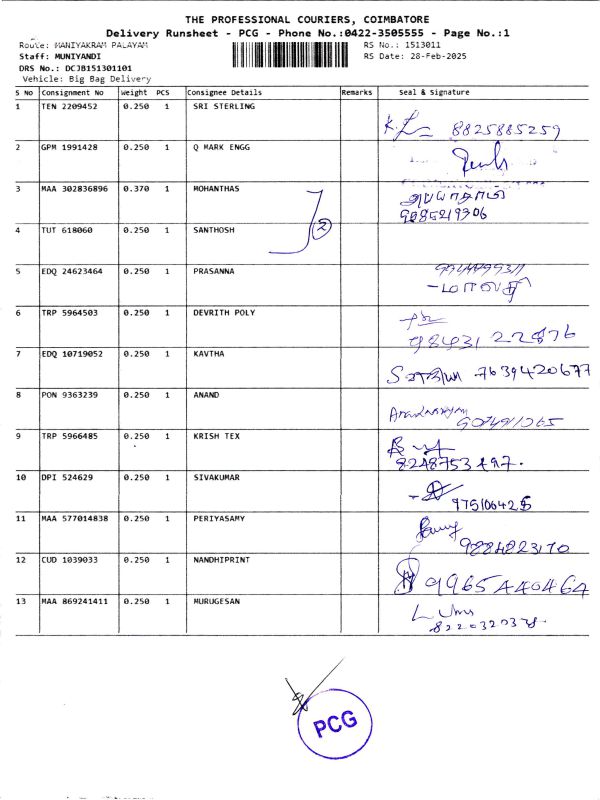 THE PROFESSIONAL COURIERS, COIMBATORE
Delivery Runsheet - PCG - Phone No.:0422-3505555 - Page No.:1
Route: MANIYAKRAM PALAYAM RS No.: 1513011
Staff: MUNIYANDI RS Date: 28-Feb-2025
DRS No.: DCJB151301101
Vehicle: Big Bag Delivery
S NO Consignment No Weight PCS Consignee Details Remarks Seal & Signature
1 TEN 2209452 0.250 1 SRI STERLING
8825885259
2 GPM 1991428 0.250 1 Q MARK ENGG
3 MAA 302836896 0.370 1 MOHANTHAS
2
4 TUT 618060 0.250 1 SANTHOSH
5 EDQ 24623464 0.250 1 PRASANNA
மாலதி
6 TRP 5964503 0.250 1 DEVRITH POLY
98431 22876
7 EDQ 10719052 0.250 1 KAVTHA
7639420677
8 PON 9363239 0.250 1 ANAND
9 TRP 5966485 0.250 1 KRISH TEX
8248753497.
10 DPI 524629 0.250 1 SIVAKUMAR
11 MAA 577014838 0.250 1 PERIYASAMY
9884223170
12 CUD 1039033 0.250 1 NANDHIPRINT
9965440464
13 MAA 869241411 0.250 1 MURUGESAN
PCG